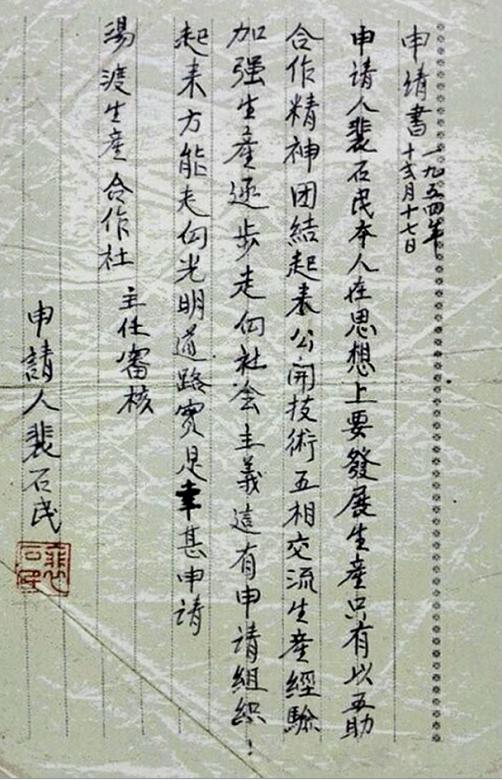 申请書 一九五四年
十弍月十七日
申请人裴石民本人在思想上要發展生產只有以互助
合作精神团結起来公開技術互相交流生產經驗
加强生產逐步走向社会主義這有申请組织!
起来方能走向光明道路实是幸甚申请
湯渡生產合作社 主任審核
申請人裴石民
裴石民